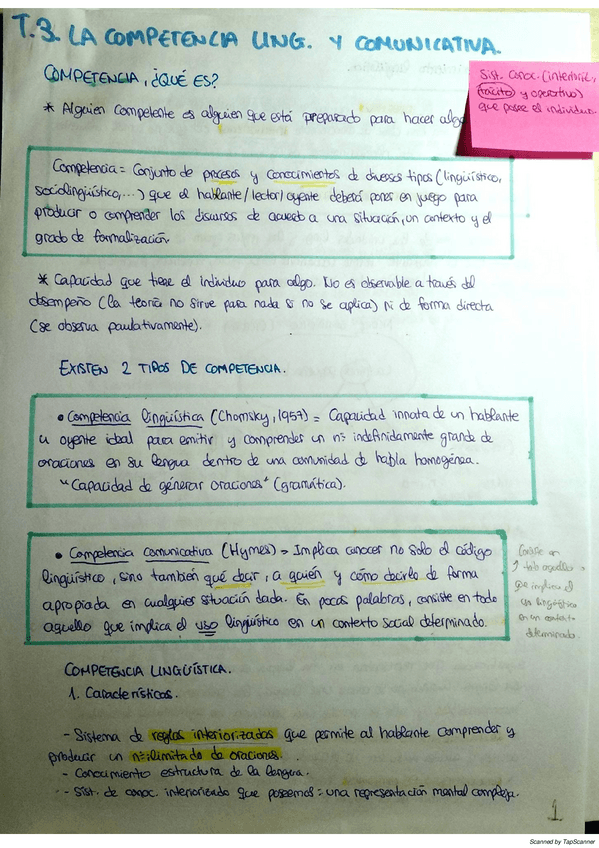 T.3. LA COMPETENCIA LING. Y COMUNICATIVA.
Sist. conoc. (interioriz,
tácito) y operativo)
que posee el individuo.
COMPETENCIA, ¿QUÉ ES?
* Alguien competente es alguien que está preparado para hacer algo
Competencia = Conjunto de procesos y conocimientos de diversos tipos (lingüístico,
sociolingüístico,...) que el hablante/lector/oyente deberá poner en juego para
producir o comprender los discursos de acuerdo a una situación, un contexto y el
grado de formalización.
* Capacidad que tiene el individuo para algo. No es observable a través del
desempeño (la teoría no sirve para nada si no se aplica) ni de forma directa
(se observa paulativamente).
EXISTEN 2 TIPOS DE COMPETENCIA.
• Competencia lingüística (Chomsky, 1957) = Capacidad innata de un hablante
u oyente ideal para emitir y comprender un nº indefinidamente grande de
oraciones en su lengua dentro de una comunidad de habla homogénea.
"Capacidad de génerar oraciones" (gramática).
• Competencia comunicativa (Hymes) = Implica conocer no solo el código
lingüístico, sino también qué decir, a quién y cómo decirlo de forma
apropiada en cualquier situación dada. En pocas palabras, consiste en todo
aquello que implica el uso lingüístico en un contexto social determinado.
Consiste en
todo aquello
que implica el
uso lingüístico
en un contexto
determinado.
COMPETENCIA LINGÜÍSTICA.
1. Características.
- Sistema de reglas interiorizadas que permite al hablante comprender y
producir un nº ilimitado de oraciones.
- Conocimiento estructura de la lengua.
- Sist. de conoc. interiorizado que poseemos = una representación mental compleja.
1
Scanned by TapScanner